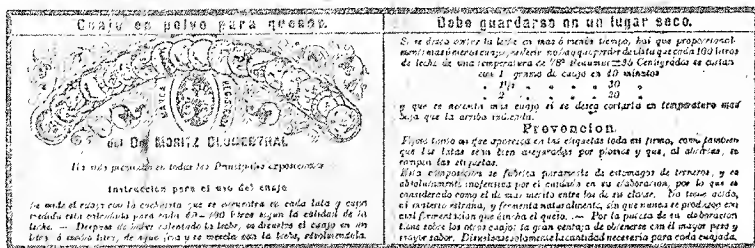 Cuajo en polvo para quesos.
MARCA REGISTRADA
del Dr. MORITZ BLUMENTHAL
Ha sido premiado en todas las Principales exposiciones
Instruccion para el uso del cuajo
Se mide el cuajo con la cucharita que se encuentra en cada lata y cuya
medida está calculada para cada 60-100 litros segun la calidad de la
leche. — Despues de haber calentado la leche, se disuelve el cuajo en un
litro de agua fria y se mezcla con la leche, revolviendola.
Debe guardarse en un lugar seco.
Si se desea cortar la leche en mas ó menos tiempo, hai que proporcional-
mente mas ó menos cuajo, perder de vista que cada 100 litros
de leche de una temperatura de 28° Reaumur=35 Centigrados se cortan
con 1 gramo de cuajo en 40 minutos
" 1½ " " " " 30 "
" 2 " " " " 20 "
y que se necesita mas cuajo si se desea cortarla en temperatura mas
baja que la arriba indicada.
Prevencion.
Fijese tanto en que aparezca en las etiquetas toda mi firma, como tambien
que las latas sean bien aseguradas por plomos y que, al abrirlas, se
rompan las etiquetas.
Esta composicion se fabrica puramente de estomagos de terneros, y es
absolutamente inofensiva por el cuidado en su elaboracion, por lo que es
considerado como el de mas merito entre los de su clase. No tiene acido,
ni materia estraña, y fermenta naturalmente, sin que nunca se produzca con
cual fermentacion que hincha el queso. — Por la pureza de su elaboracion
tiene sobre los otros cuajos la gran ventaja de obtenerse con el mayor peso y
mayor sabor. Disuelvase solamente la cantidad necesaria para cada cuajada.